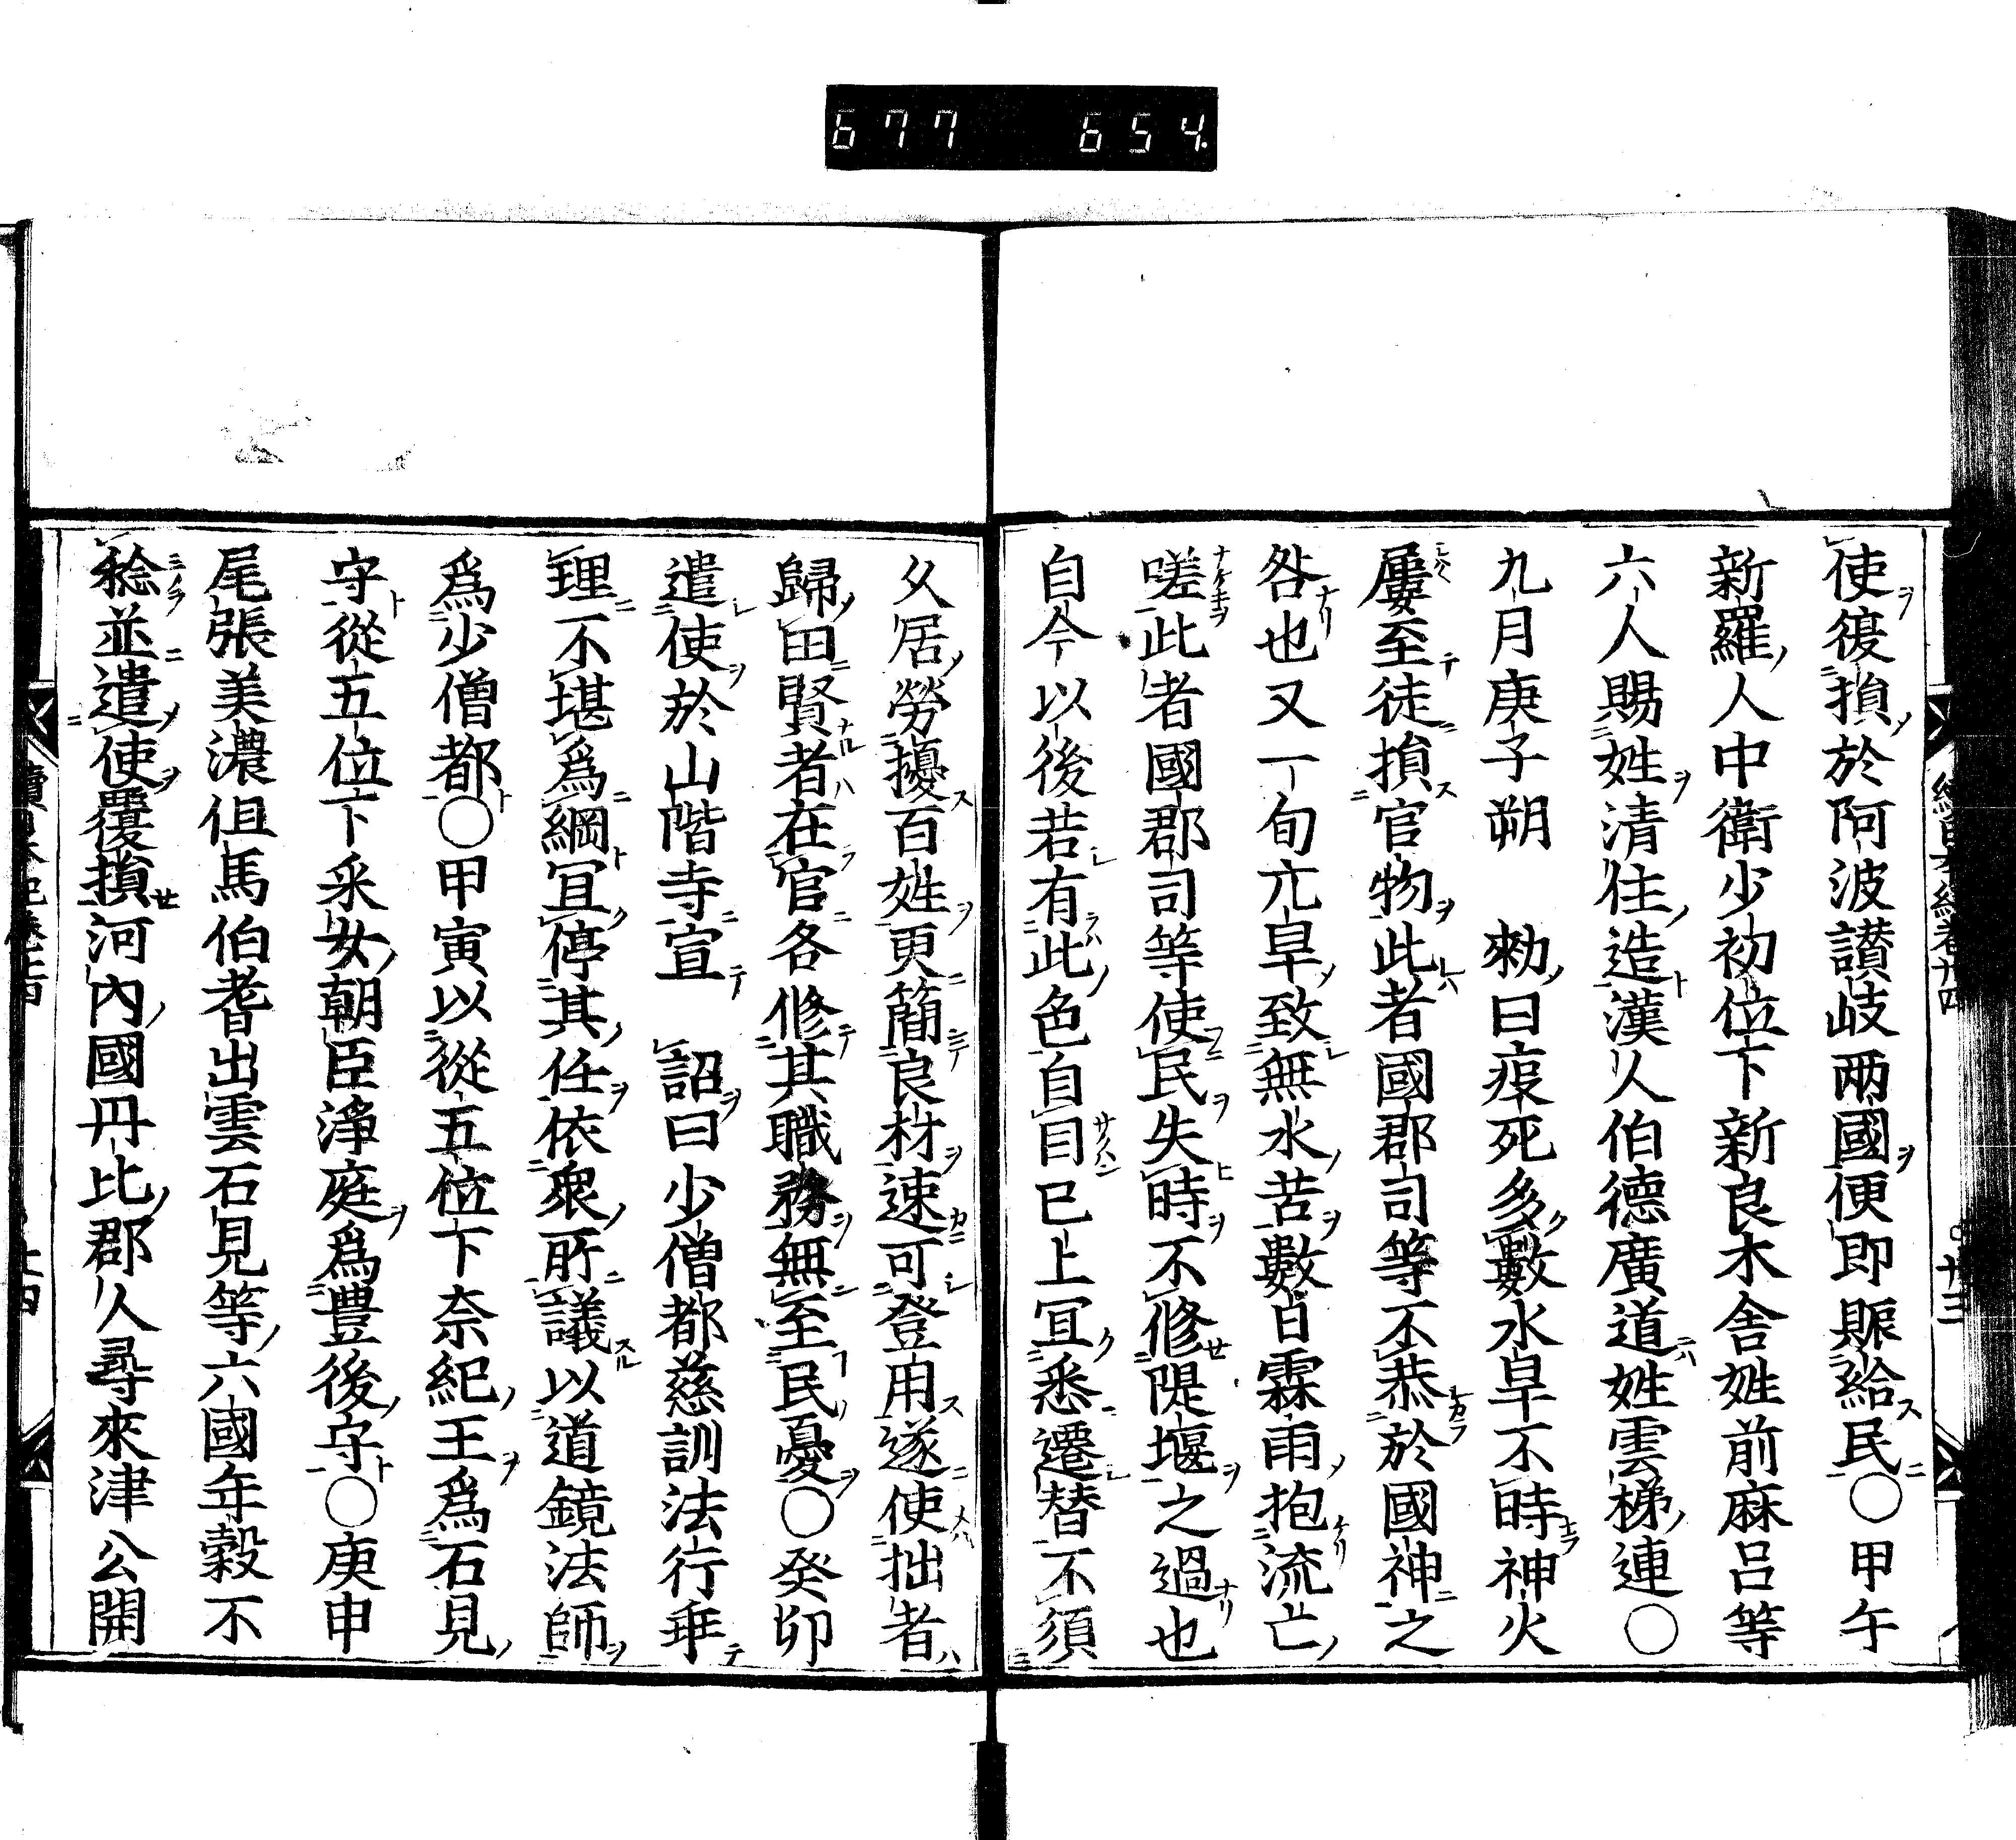 677 654
使復損於阿波讃岐兩國便即賑給民〇甲午
新羅人中衛少初位下新良木舎姓前麻呂等
六人賜姓清住造漢人伯德廣道姓雲梯連〇
九月庚子朔 勅曰疫死多數水旱不時神火
屢至徒損官物此者國郡司等不恭於國神之
咎也又一旬亢旱致無水苦數日霖雨抱流亡
嗟此者國郡司等使民失時不修隄堰之過也
自今以後若有此色自目已上宜悉遷替不須
久居勞擾百姓更簡良材速可登用遂使拙者
歸田賢者在官各修其職務無至民憂〇癸卯
遣使於山階寺宣 詔曰少僧都慈訓法行乖
理不堪爲綱宜停其任依衆所議以道鏡法師
爲少僧都〇甲寅以從五位下奈紀王爲石見
守從五位下采女朝臣淨庭爲豊後守〇庚申
尾張美濃但馬伯耆出雲石見等六國年穀不
稔並遣使覆損河內國丹比郡人尋來津公關